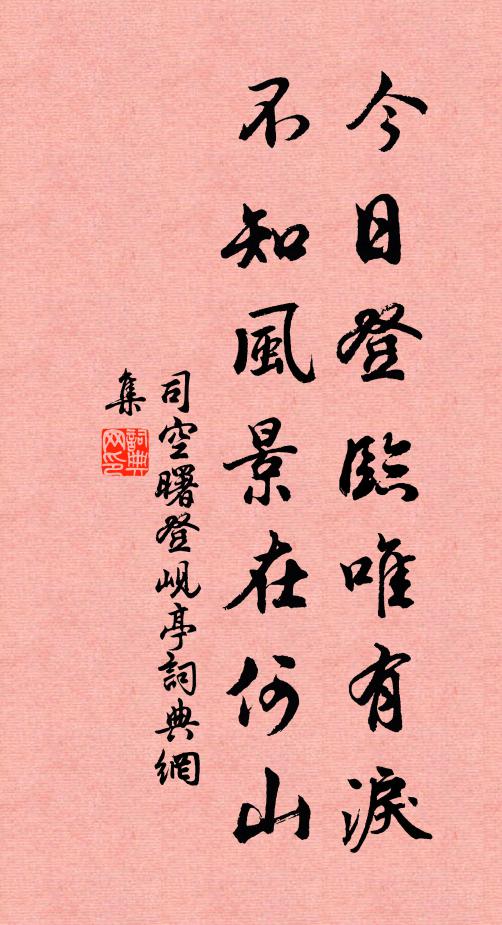 今日登臨唯有淚
不知風景在何山
司空曙登峴亭詞典網
集
詞典
网印